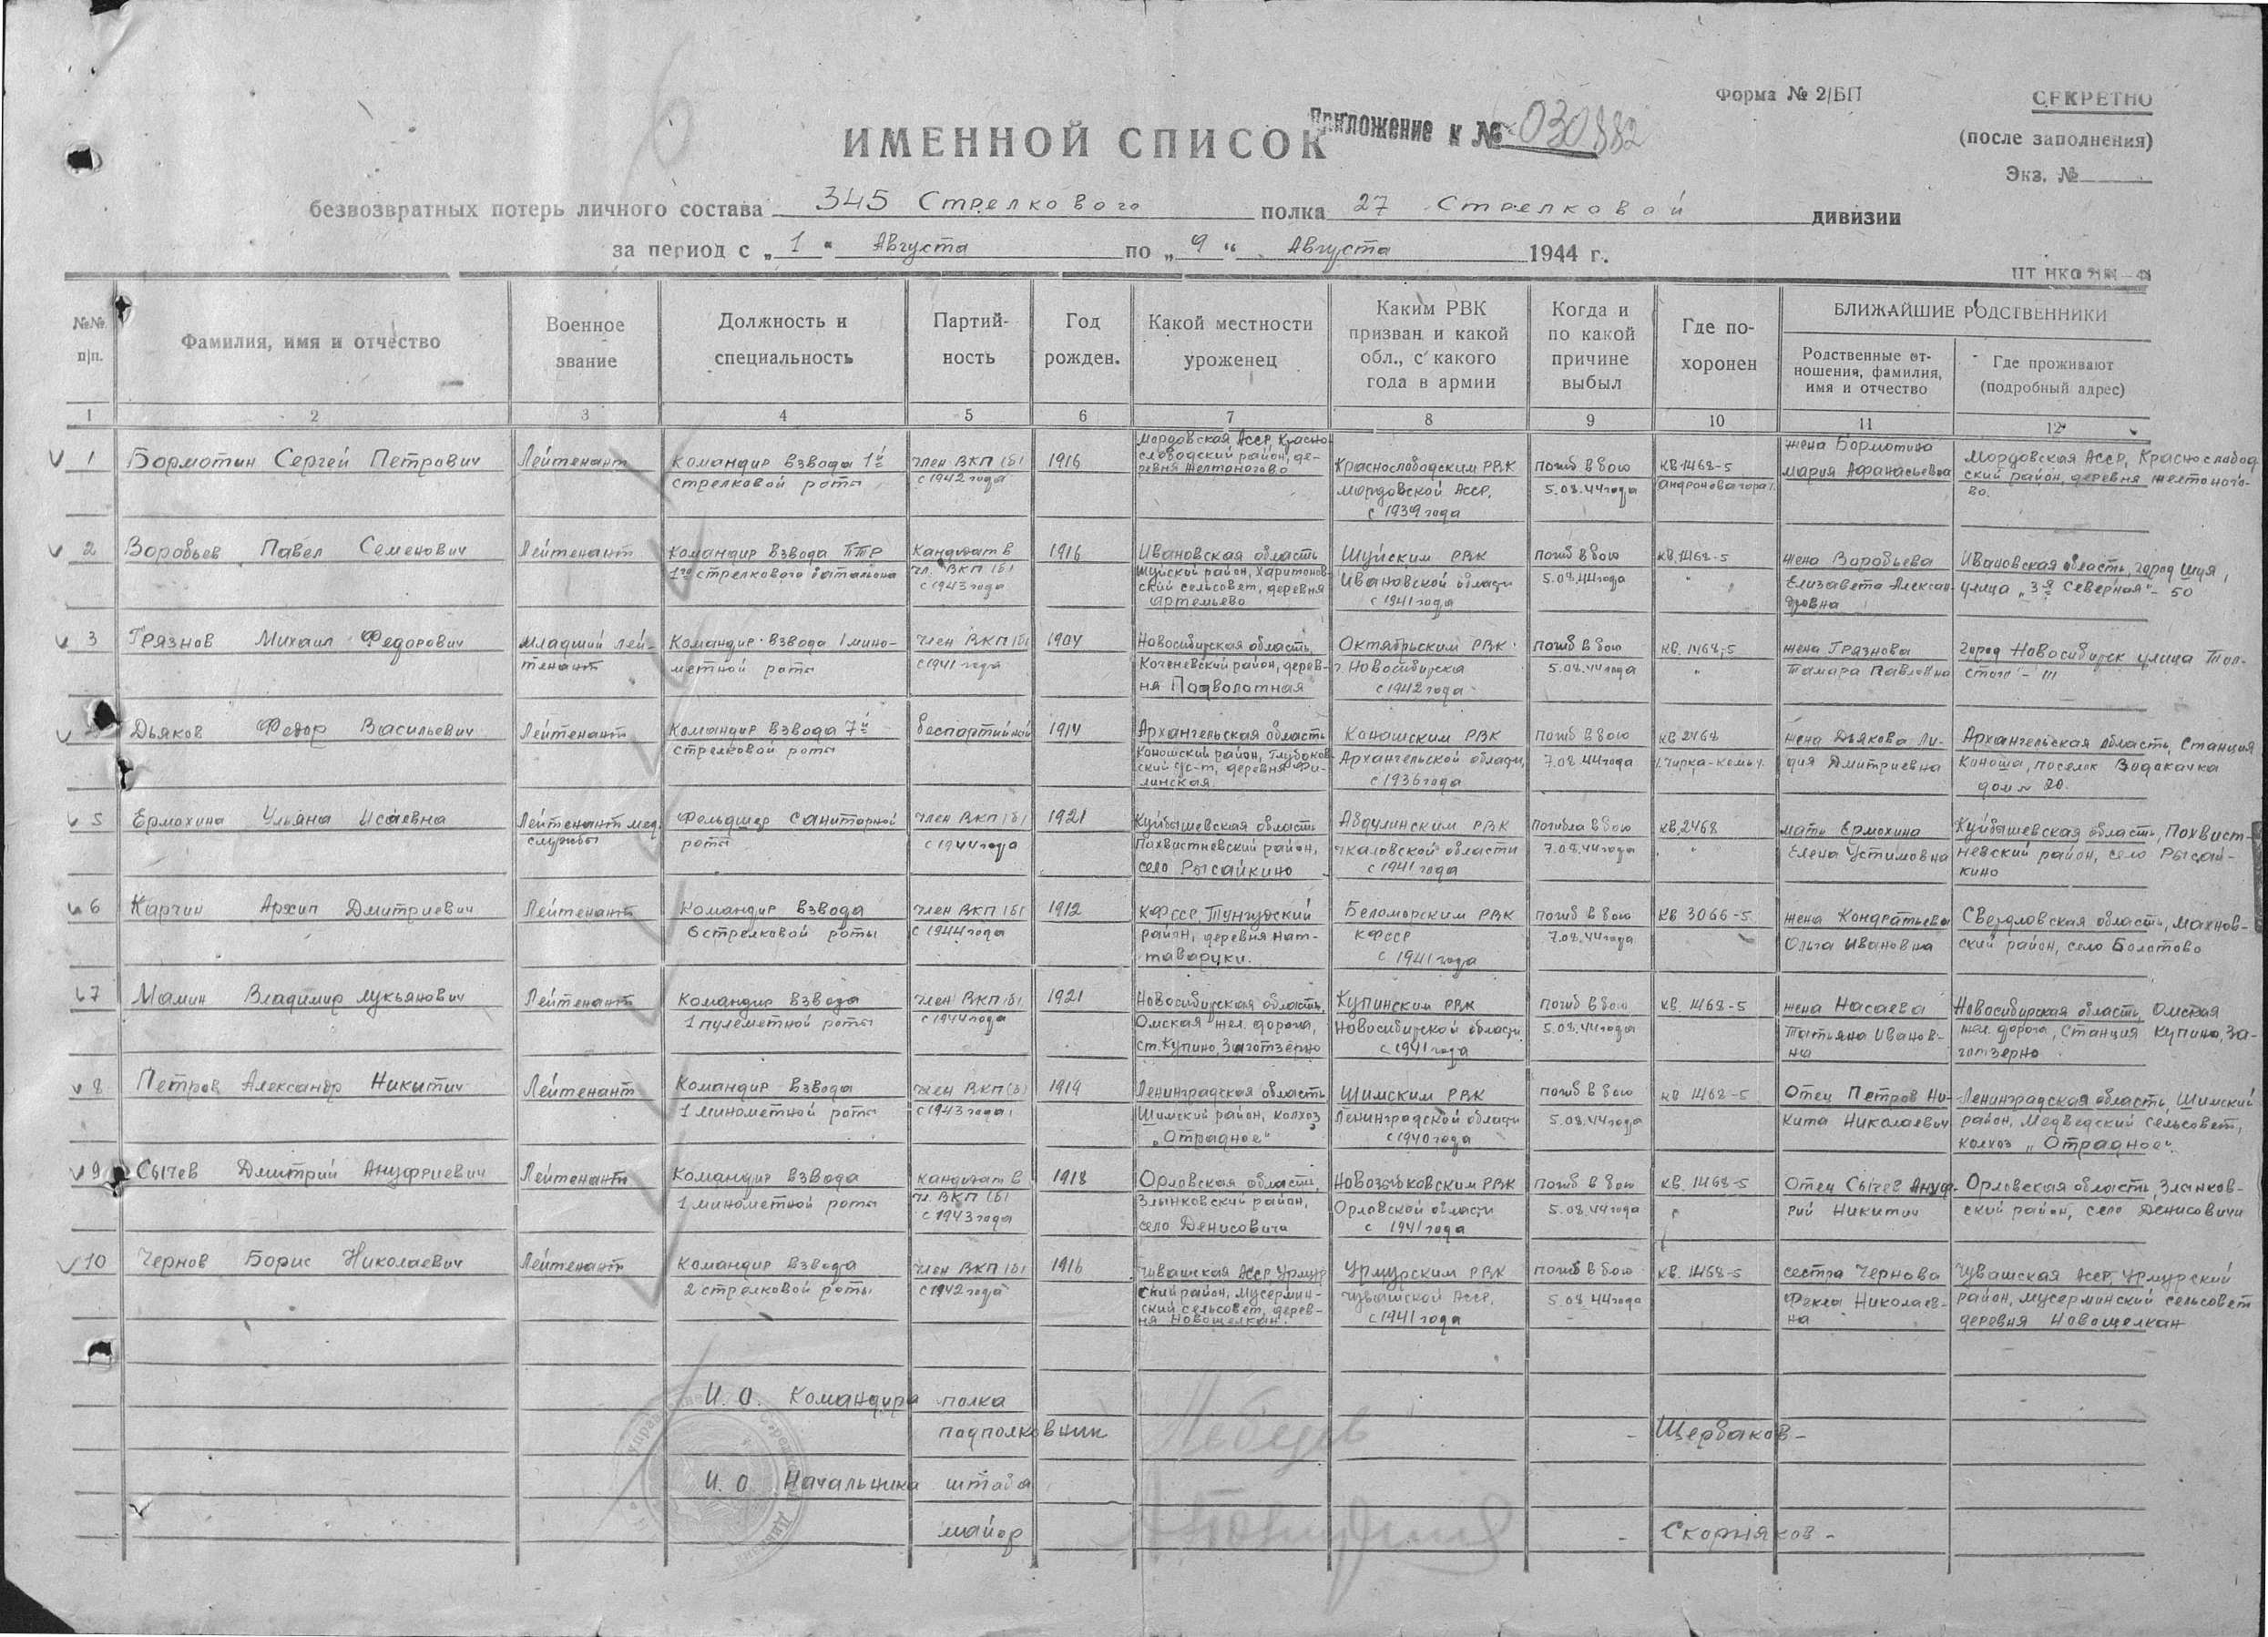 Форма № 2/БП
СЕКРЕТНО
(после заполнения)
Экз. №
ИМЕННОЙ СПИСОК
Приложение к № 030882
безвозвратных потерь личного состава 345 Стрелкового полка 27 Стрелковой дивизии
за период с „1“ Августа по „9“ Августа 1944 г.
№№ п/п.
Фамилия, имя и отчество
Военное звание
Должность и специальность
Партий-
ность
Год рожден.
Какой местности уроженец
Каким РВК
призван и какой
обл., с какого
года в армии
Когда и
по какой
причине
выбыл
Где по-
хоронен
БЛИЖАЙШИЕ РОДСТВЕННИКИ
Родственные от-
ношения, фамилия,
имя и отчество
Где проживают
(подробный адрес)
1 2 3 4 5 6 7 8 9 10 11 12
1 Бормотин Сергей Петрович
Лейтенант
Командир взвода 1й
стрелковой роты
член ВКП(б)
с 1942 года
1916
Мордовская Асср, Красно-
слободский район, де-
ревня Желтоногово
Краснослободским РВК
Мордовской Асср,
с 1939 года
погиб в бою
5.08.44 года
кв 1468-5
жена Бормотина
Мария Афанасьевна
Мордовская Асср, Краснослобод
ский район, деревня Желтоного-
во.
2 Воробьев Павел Семенович
Лейтенант
Командир взвода ПТР
1го стрелкового батальона
Кандидат в
чл. ВКП(б)
с 1943 года
1916
Ивановская область
Шуйский район, Харитонов-
ский сельсовет, деревня
Артемьево
Шуйским РВК
Ивановской области
с 1941 года
погиб в бою
5.08.44 года
кв. 1468-5
" "
жена Воробьева
Елизавета Алексан-
дровна
Ивановская область, город Шуя,
улица „3я Северная“ - 50
3 Грязнов Михаил Федорович
младший лей-
тенант
Командир взвода 1 мино-
метной роты
член ВКП(б)
с 1941 года
1904
Новосибирская область,
Коченевский район, дерев-
ня Подволотная
Октябрьским РВК
г. Новосибирска
с 1942 года
погиб в бою
5.08.44 года
кв. 1468-5
"
жена Грязнова
Тамара Павловна
город Новосибирск улица Тол-
стого - 111
Дьяков Федор Васильевич
Лейтенант
Командир взвода 7й
стрелковой роты
беспартийный
1914
Архангельская область
Коношский район, Глубоков-
ский с/с-т, деревня Фи-
линская.
Коношским РВК
Архангельской области,
с 1936 года
погиб в бою
7.08.44 года
кв 2468
жена Дьякова Ли-
дия Дмитриевна
Архангельская область, Станция
Коноша, поселок Водокачка
дом № 20.
5 Ермохина Ульяна Исаевна
Лейтенант мед.
службы
Фельдшер Санитарной
роты
член ВКП(б)
с 1944 года
1921
Куйбышевская область
Похвистневский район,
село Рысайкино
Абдулинским РВК
Чкаловской области
с 1941 года
погибла в бою
7.08.44 года
кв. 2468
" "
мать Ермохина
Елена Устимовна
Куйбышевская область, Похвист-
невский район, село Рысай-
кино
6 Карчин Архип Дмитриевич
Лейтенант
Командир взвода
6 стрелковой роты
член ВКП(б)
с 1944 года
1912
КФсср, Тунгудский
район, деревня Нат-
таваруки.
Беломорским РВК
КФсср
с 1941 года
погиб в бою
7.08.44 года
кв 3066-5
жена Кондратьева
Ольга Ивановна
Свердловская область, Махнов-
ский район, село Болотово
7 Мамин Владимир Лукьянович
Лейтенант
Командир взвода
1 пулеметной роты
член ВКП(б)
с 1944 года
1921
Новосибирская область,
Омская жел. дорога,
ст. Купино, Заготзерно
Купинским РВК
Новосибирской области
с 1941 года
погиб в бою
5.08.44 года
кв. 1468-5
жена Насаева
Татьяна Иванов-
на
Новосибирская область, Омская
жел. дорога, Станция Купино, За-
готзерно
8 Петров Александр Никитич
Лейтенант
Командир взвода
1 минометной роты
член ВКП(б)
с 1943 года,
1919
Ленинградская область
Шимский район, колхоз
„Отрадное“
Шимским РВК
Ленинградской области
с 1940 года
погиб в бою
5.08.44 года
кв 1468-5
Отец Петров Ни-
кита Николаевич
Ленинградская область, Шимский
район, Медведский сельсовет,
колхоз „Отрадное“.
9 Сычев Дмитрий Ануфриевич
Лейтенант
Командир взвода
1 минометной роты
кандидат в
чл. ВКП(б)
с 1943 года
1918
Орловская область,
Злынковский район,
село Денисовичи
Новозыбковским РВК
Орловской области
с 1941 года
погиб в бою
5.08.44 года
кв. 1468-5
Отец Сычев Ануф-
рий Никитич
Орловская область, Злынков-
ский район, село Денисовичи
10 Чернов Борис Николаевич
Лейтенант
Командир взвода
2 стрелковой роты
член ВКП(б)
с 1942 года
1916
Чувашская Асср, Урмур
ский район, Мусермин-
ский сельсовет, дерев-
ня Новощелкан.
Урмурским РВК
Чувашской Асср,
с 1941 года
погиб в бою
5.08.44 года
кв. 1468-5
сестра Чернова
Фекла Николаев-
на
Чувашская Асср, Урмурский
район, Мусерминский сельсовет
деревня Новощелкан
И. О. Командира полка
подполковник
- Щербаков -
И. О. Начальника штаба
майор
- Скорняков -